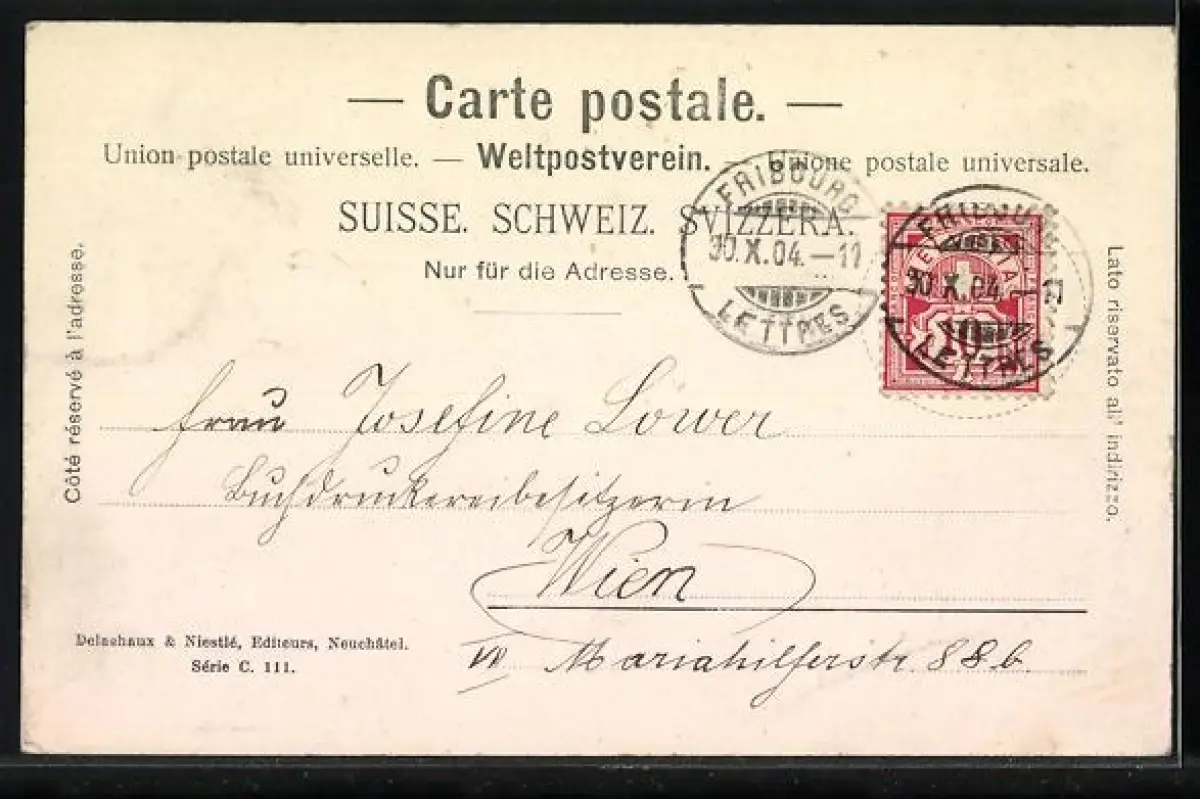 — Carte postale. —
Union postale universelle. — Weltpostverein. — Unione postale universale.
SUISSE. SCHWEIZ. SVIZZERA.
Nur für die Adresse.
Côté réservé à l'adresse.
Lato riservato all' indirizzo.
FRIBOURG
30.X.04.—11
LETTRES
30.X.04.
LETTRES
10
Frau Josefine Löwer
Buchdruckereibesitzerin
Wien
VII Mariahilferstr. 88b.
Delachaux & Niestlé, Editeurs, Neuchâtel.
Série C. 111.